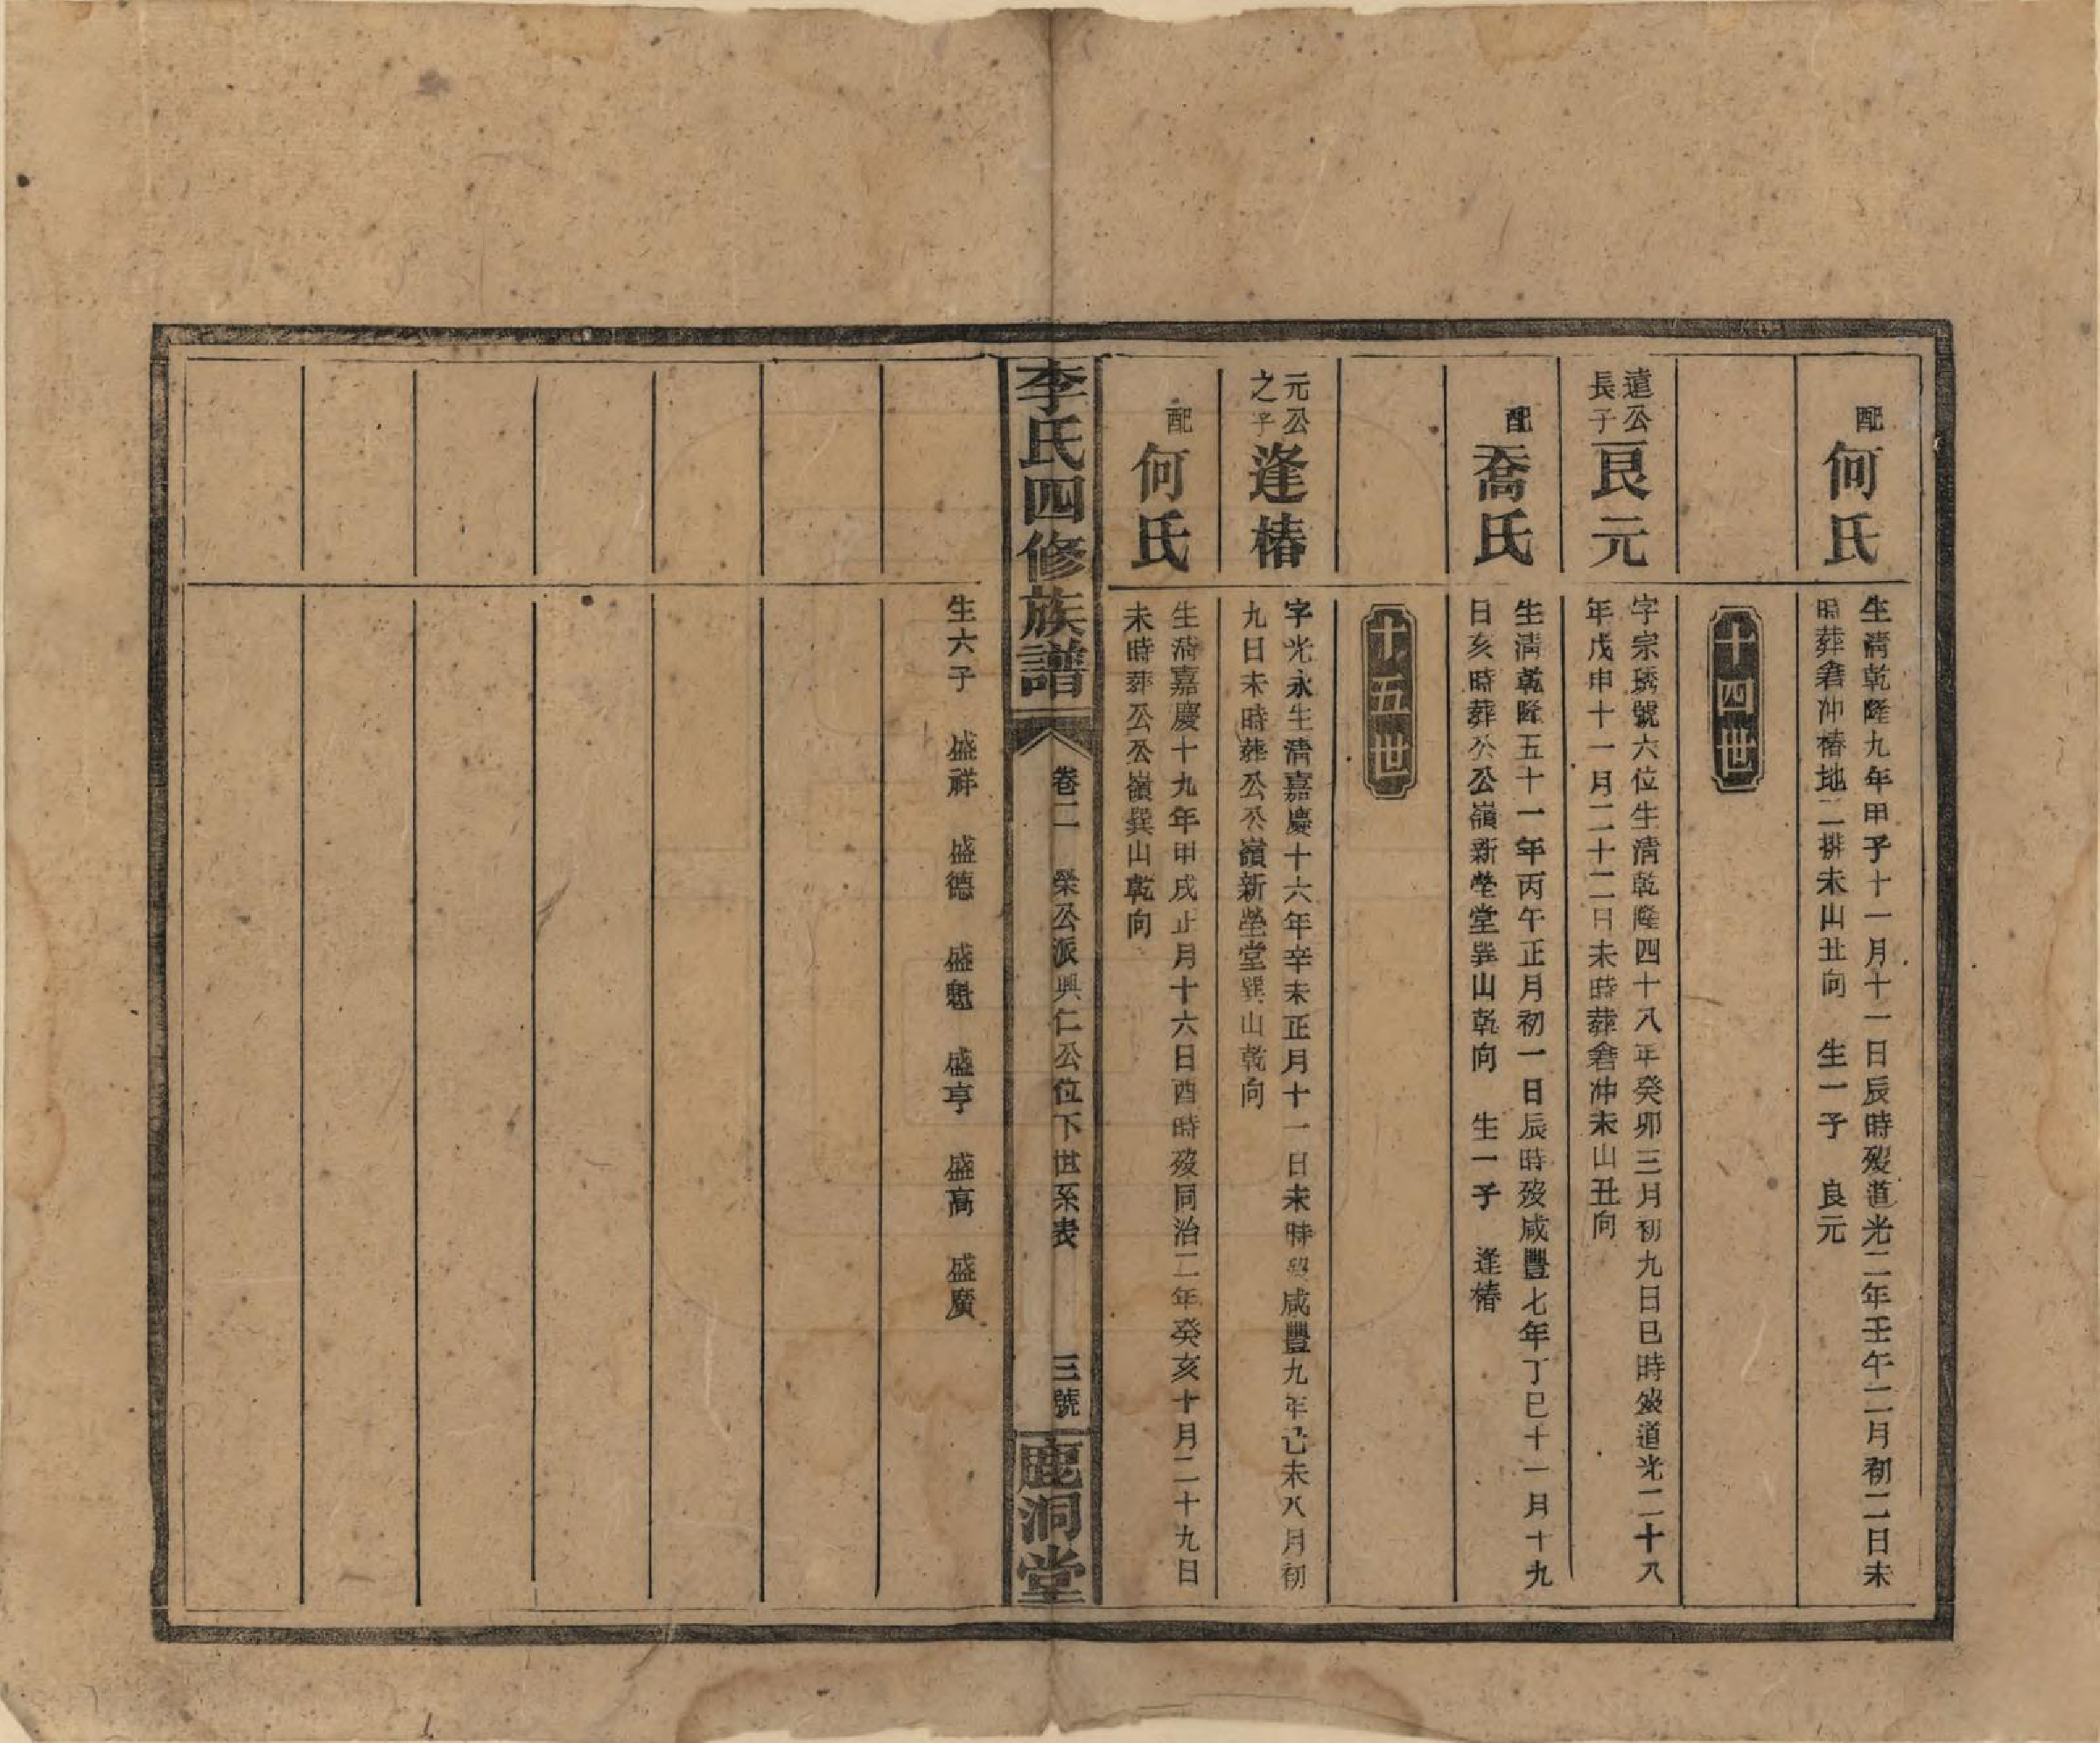 配
何氏
生清乾隆九年甲子十一月十一日辰時歿道光二年壬午二月初二日未
時葬倉冲椿地二排未山丑向　生一子　良元
十四世
遠公
長子
良元
字宗琇號六位生清乾隆四十八年癸卯三月初九日巳時歿道光二十八
年戊申十一月二十二日未時葬倉冲未山丑向
配
喬氏
生清乾隆五十一年丙午正月初一日辰時歿咸豐七年丁巳十一月十九
日亥時葬公公嶺新塋堂巽山乾向　生一子　逢椿
十五世
元公
之子
逢椿
字光永生清嘉慶十六年辛未正月十一日未時歿咸豐九年己未八月初
九日未時葬公公嶺新塋堂巽山乾向
配
何氏
生清嘉慶十九年甲戌正月十六日酉時歿同治二年癸亥十月二十九日
未時葬公公嶺巽山乾向
李氏四修族譜
卷二　榮公派興仁公位下世系表
三號
鹿洞堂
生六子　盛祥　盛德　盛魁　盛亨　盛高　盛廣